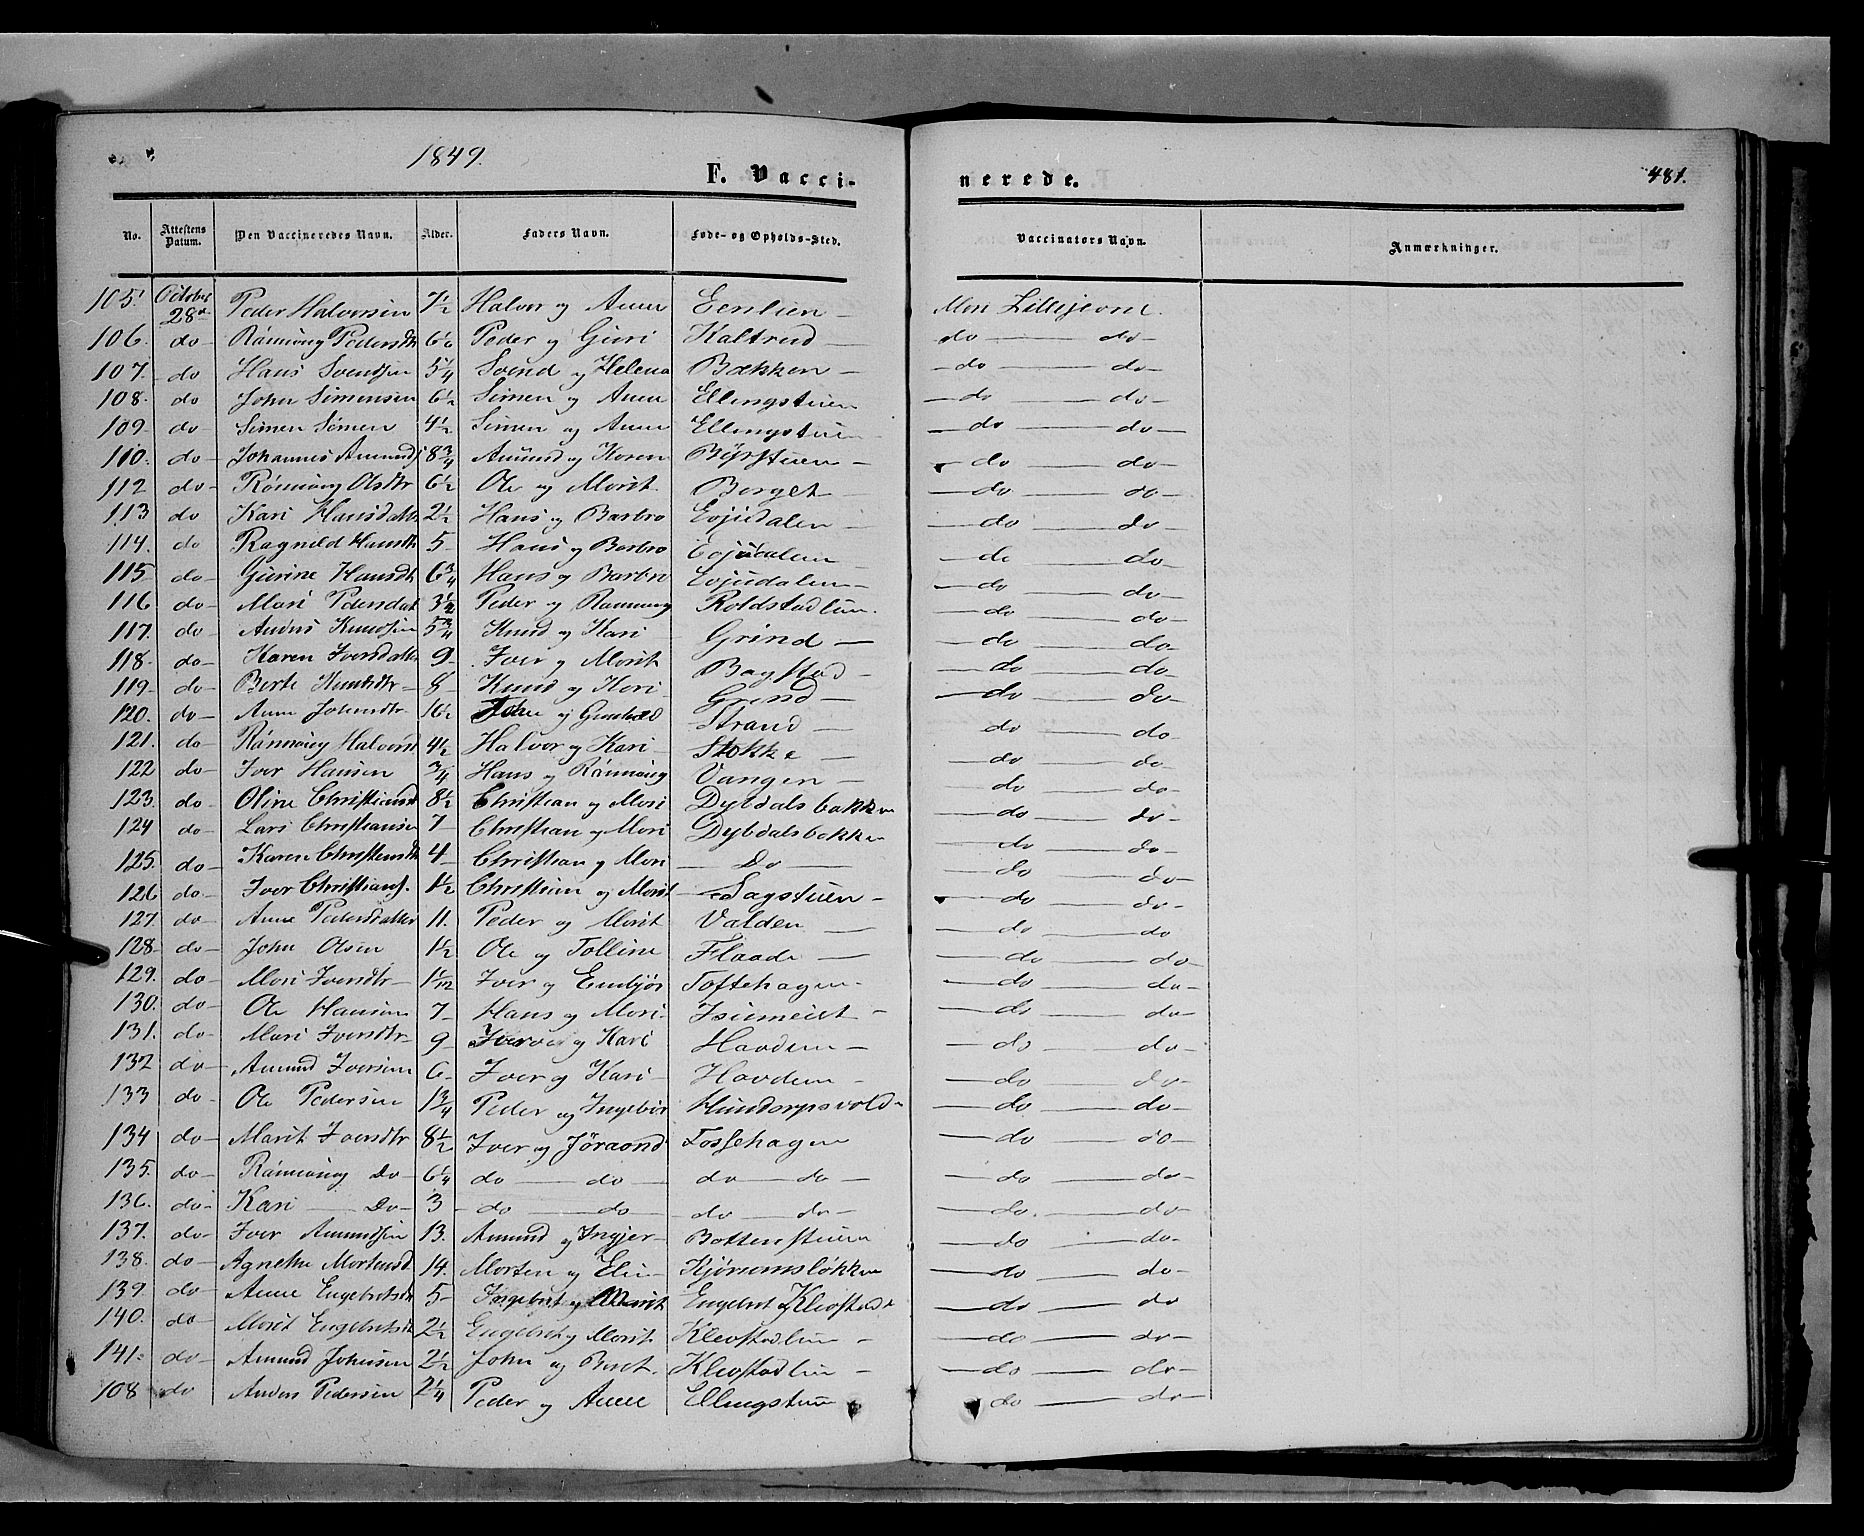 1849.
F. Vacci-
nerede.
481.
No. Attestens Datum. Den Vaccineredes Navn. Alder. Faders Navn. Føde- og Opholds-Sted. Vaccinators Navn. Anmærkninger.
105 October 28de Peder Halvorsen 7½ Halvor og Anne
106. do Rønnoug Pedersdtr Peder og Guri Kaltrud — do — do
107. do Hans Svendsen 5¼ Svend og Helena Bækken — do — do
108. do John Simensen 6½ Simen og Anne Ellingstuen — do — do
109 do Simen Simen 4½ Simen og Anne Ellingstuen — do — do
110. do Johannes Amunds 8¾ Amund og Karen — do — do
112 do Rønnoug Olsdtr 6½ Ole og Marit Berget — do — do
113 do Kari Hansdatter 2½ Hans og Barbro Evjudalen — do — do
114. do Ragnild Hansdtr 5 Hans og Barbro Evjudalen — do — do
115 do Gurine Hansdt 6¾ Hans og Barbro Evjudalen — do — do
116 do Mari Pedersdat 3½ Peder og Rønnoug — do — do
117. do Anders Knudsen 5¾ Knud og Kari Grind — do — do
118. do Karen Iversdatter 9 Iver og Marit Bagstad — do — do
119 do Berte Knudsdtr 8 Knud og Kari Grind — do — do
120. do Anne Johnsdtr John og Gunhild Strand — do — do
121. do Rønnoug Halvorsd 4½ Halvor og Kari Stokke — do — do
122 do Iver Hansen ¾ Hans og Rønnoug Vangen — do — do
123. do Oline Christiansd 8½ Christian og Mari Dybdalsbakken — do — do
124 do Lars Christiansen 7 Christian og Mari Dybdalsbakken — do — do
125. do Karen Christiansdt 4 Christian og Mari — Do — do — do
126 do Iver Christians. 1½ Christian og Marit Sagstuen — do — do
127. do Anne Pedersdatter 11. Peder og Marit Valden — do — do
128 do John Olsen 1½ Ole og Flaade — do — do
129. do Mari Iversdtr Iver og Embjør Toftehagen — do — do
130. do Ole Hansen 7 Hans og Mari — do — do
131. do Mari Iversdtr 9 Iver og Kari Havden — do — do
132 do Amund Iversen 6 Iver og Kari Havden — do — do
133 do Ole Pedersen 1¾ Peder og Ingebør Hundorpsvold — do — do
134 do Marit Iversdtr 8½ Iver og Jøraand Fossehagen — do — do
135. do Rønnoug Do 6¼ do — do do — do — do — do
136. do Kari — Do 3 do — do do — do — do — do
137. do Iver Amundsen 13. Amund og Ingjer Bottenstuen — do — do
138. do Agnethe Mortensd 14. Morten og Eli Kjørumsløkken — do — do
139. do Anne Engebretsdt 5 Ingebret og Marit Engebret — do — do
140. do Marit Engebretsdt 2½ Engebret og Marit Klevstadlien — do — do
141. do Amund Johnsen 2½ John og Beret Klevstadlien — do — do
108 do Anders Pedersen 2¼ Peder og Anne Ellingstuen — do — do